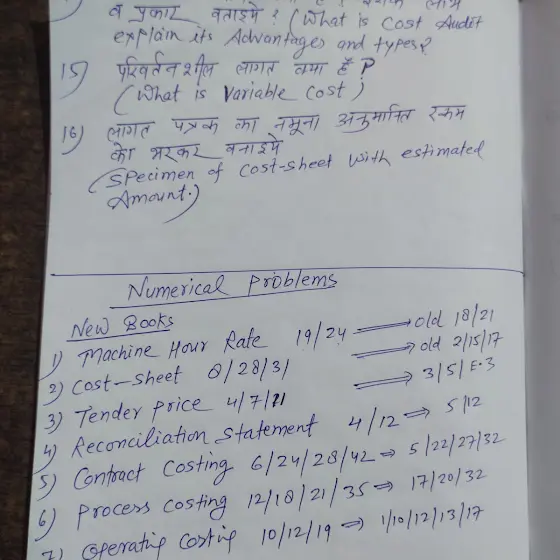 व प्रकार बताइये ? (What is Cost Audit
explain its Advantages and types?
15) परिवर्तनशील लागत क्या है ?
(What is Variable Cost)
16) लागत पत्रक का नमूना अनुमानित रकम
को भरकर बनाइये
(Specimen of Cost-Sheet with estimated
Amount.)
Numerical Problems
New Books
1) Machine Hour Rate 19/24 ⟹ old 18/21
2) Cost-Sheet 8/28/31 ⟹ old 2/15/17
3) Tender Price 4/7/11 ⟹ 3/5/E.3
4) Reconciliation Statement 4/12 ⇒ 5/12
5) Contract Costing 6/24/28/42 ⇒ 5/22/27/32
6) Process Costing 12/18/21/35 ⇒ 17/20/32
7) Operating Costing 10/12/19 ⇒ 1/10/12/13/17